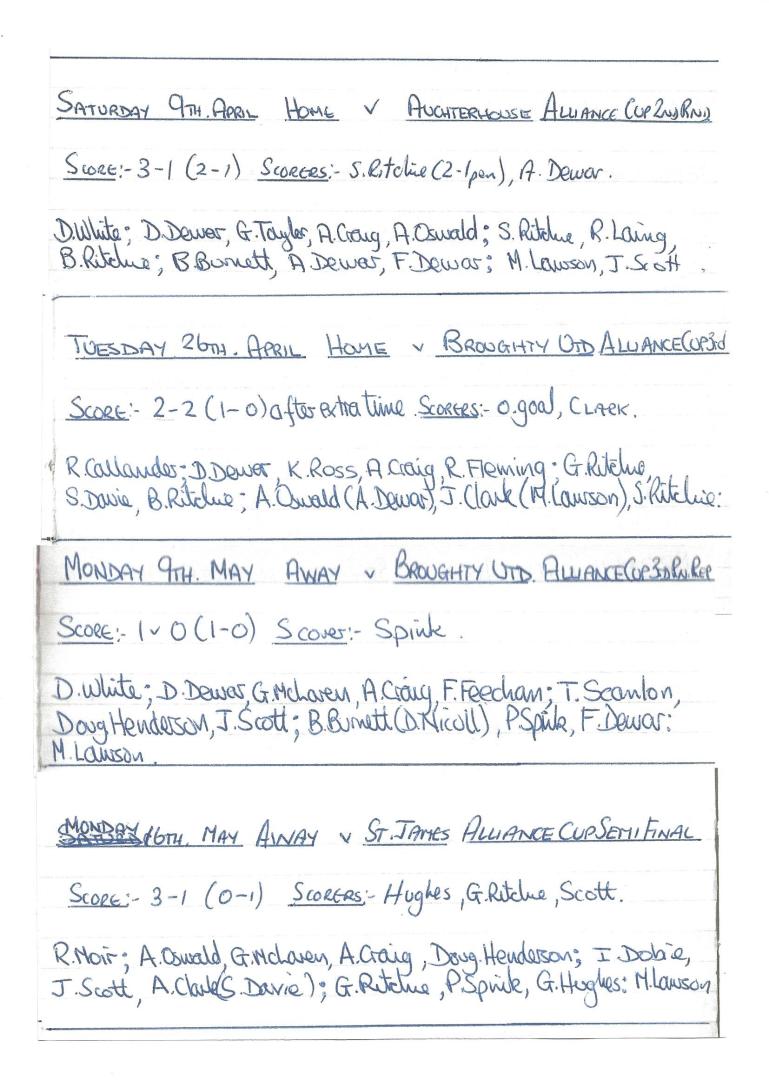 SATURDAY 9TH. APRIL HOME v AUCHTERHOUSE ALLIANCE CUP 2ND RND
SCORE:- 3-1 (2-1) SCORERS:- S. Ritchie (2-1pen), A. Dewar.
D. White; D. Dewar, G. Taylor, A. Craig, A. Oswald; S. Ritchie, R. Laing,
B. Ritchie; B. Burnett, A. Dewar, F. Dewar; M. Lawson, J. Scott .
TUESDAY 26TH. APRIL HOME v BROUGHTY UTD ALLIANCE CUP 3rd
SCORE:- 2-2 (1-0) after extra time. SCORERS:- O. goal, CLARK.
R. Callander; D. Dewar, K. Ross, A. Craig, R. Fleming; G. Ritchie,
S. Davie, B. Ritchie; A. Oswald (A. Dewar), J. Clark (M. Lawson), S. Ritchie:
MONDAY 9TH. MAY AWAY v BROUGHTY UTD. ALLIANCE CUP 3RD RN. REP
SCORE:- 1 v 0 (1-0) Scorer:- Spink .
D. White; D. Dewar, G. McLaren, A. Craig, F. Feechan; T. Scanlon,
Doug Henderson, J. Scott; B. Burnett (D. Nicoll), P. Spink, F. Dewar:
M. Lawson.
MONDAY 16TH. MAY AWAY v ST. JAMES ALLIANCE CUP SEMI FINAL
SCORE:- 3-1 (0-1) SCORERS:- Hughes, G. Ritchie, Scott.
R. Moir; A. Oswald, G. McLaren, A. Craig, Doug. Henderson; I. Dobie,
J. Scott, A. Clark (S. Davie); G. Ritchie, P. Spink, G. Hughes: M. Lawson